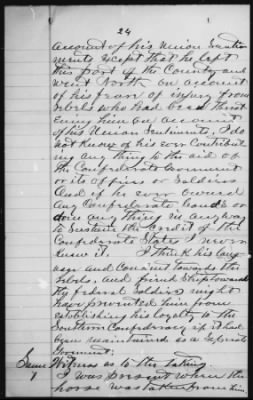 24
account of his Union Senti
ments except that he left
this part of the County and
went North on account
of his fear of injury from
Rebels who had been threat
ening him on account
of his Union Sentiments, I do
not know of his ever Contribut
ing any thing to the aid of
the Confederate Government
or its Officers or Soldiers
And if he ever owned
Any Confederate bonds or
done any thing in any way
to Sustain the Credit of the
Confederate States I never
knew it. I think his lang
uage and Conduct towards the
Rebels, and friendship toward
the federal Soldiers might
have prevented him from
establishing his loyalty to the
Southern Confederacy if it had
been maintained as a Seperate
Government;
Same Witness as to the taking
1 I was present when the
horse was taken from him